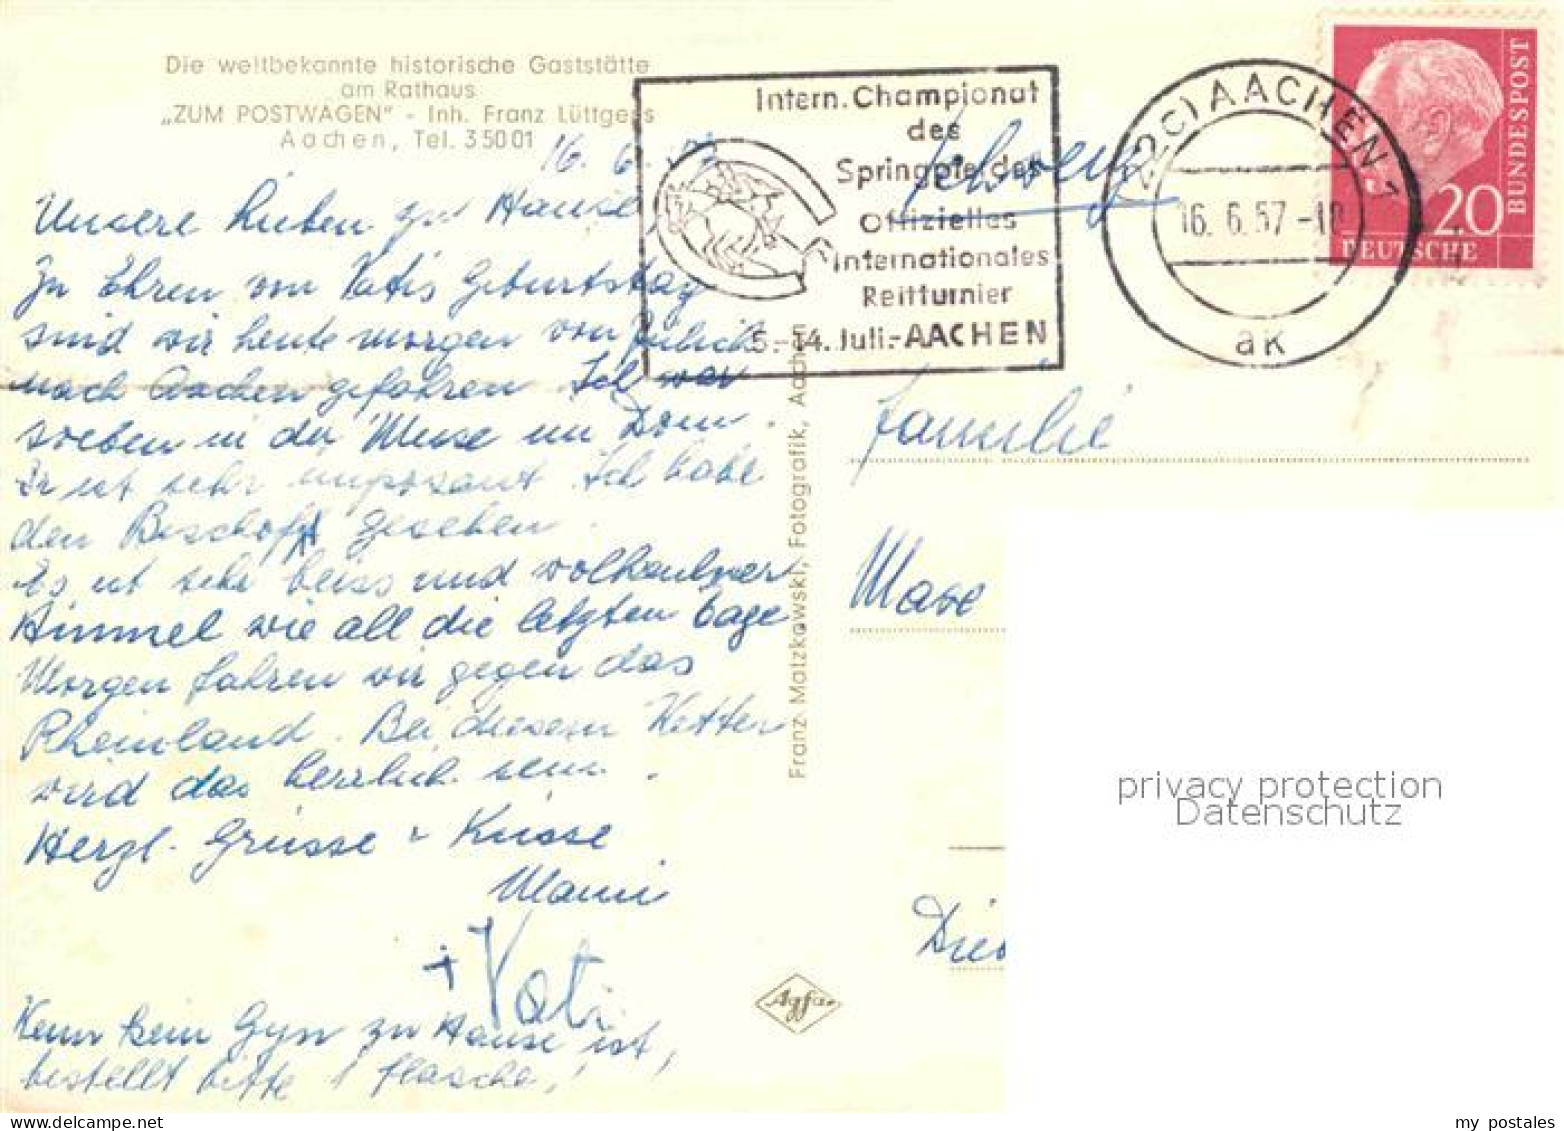 Die weltbekannte historische Gaststätte
am Rathaus
„ZUM POSTWAGEN“ - Inh. Franz Lüttgens
Aachen, Tel. 35001
16. 6. 57
Unsere Lieben zu Hause,
Zu Ehren von Vatis Geburtstag
sind wir heute morgen von Jülich
nach Aachen gefahren Ich war
soeben in der Messe im Dom.
Er ist sehr imposant Ich habe
den Bischoff gesehen.
Es ist sehr heiss und wolkenloser
Himmel wie all die letzten Tage
Morgen fahren wir gegen das
Rheinland. Bei diesem Wetter
wird das herrlich sein.
Herzl. Grüsse + Küsse
Mami
+ Vati
Wenn kein Gyn zu Hause ist,
bestellt bitte 1 flasche!
Franz Matzkowski, Fotografik, Aachen
Agfa
Intern. Championat
des
Springpferdes
Offizielles
Internationales
Reitturnier
5.-14. Juli.-AACHEN
(22C) AACHEN 1
16. 6. 57 -18
ak
DEUTSCHE
BUNDESPOST
20
Schweiz
Familie
Mase
Dies
privacy protection
Datenschutz
my postales